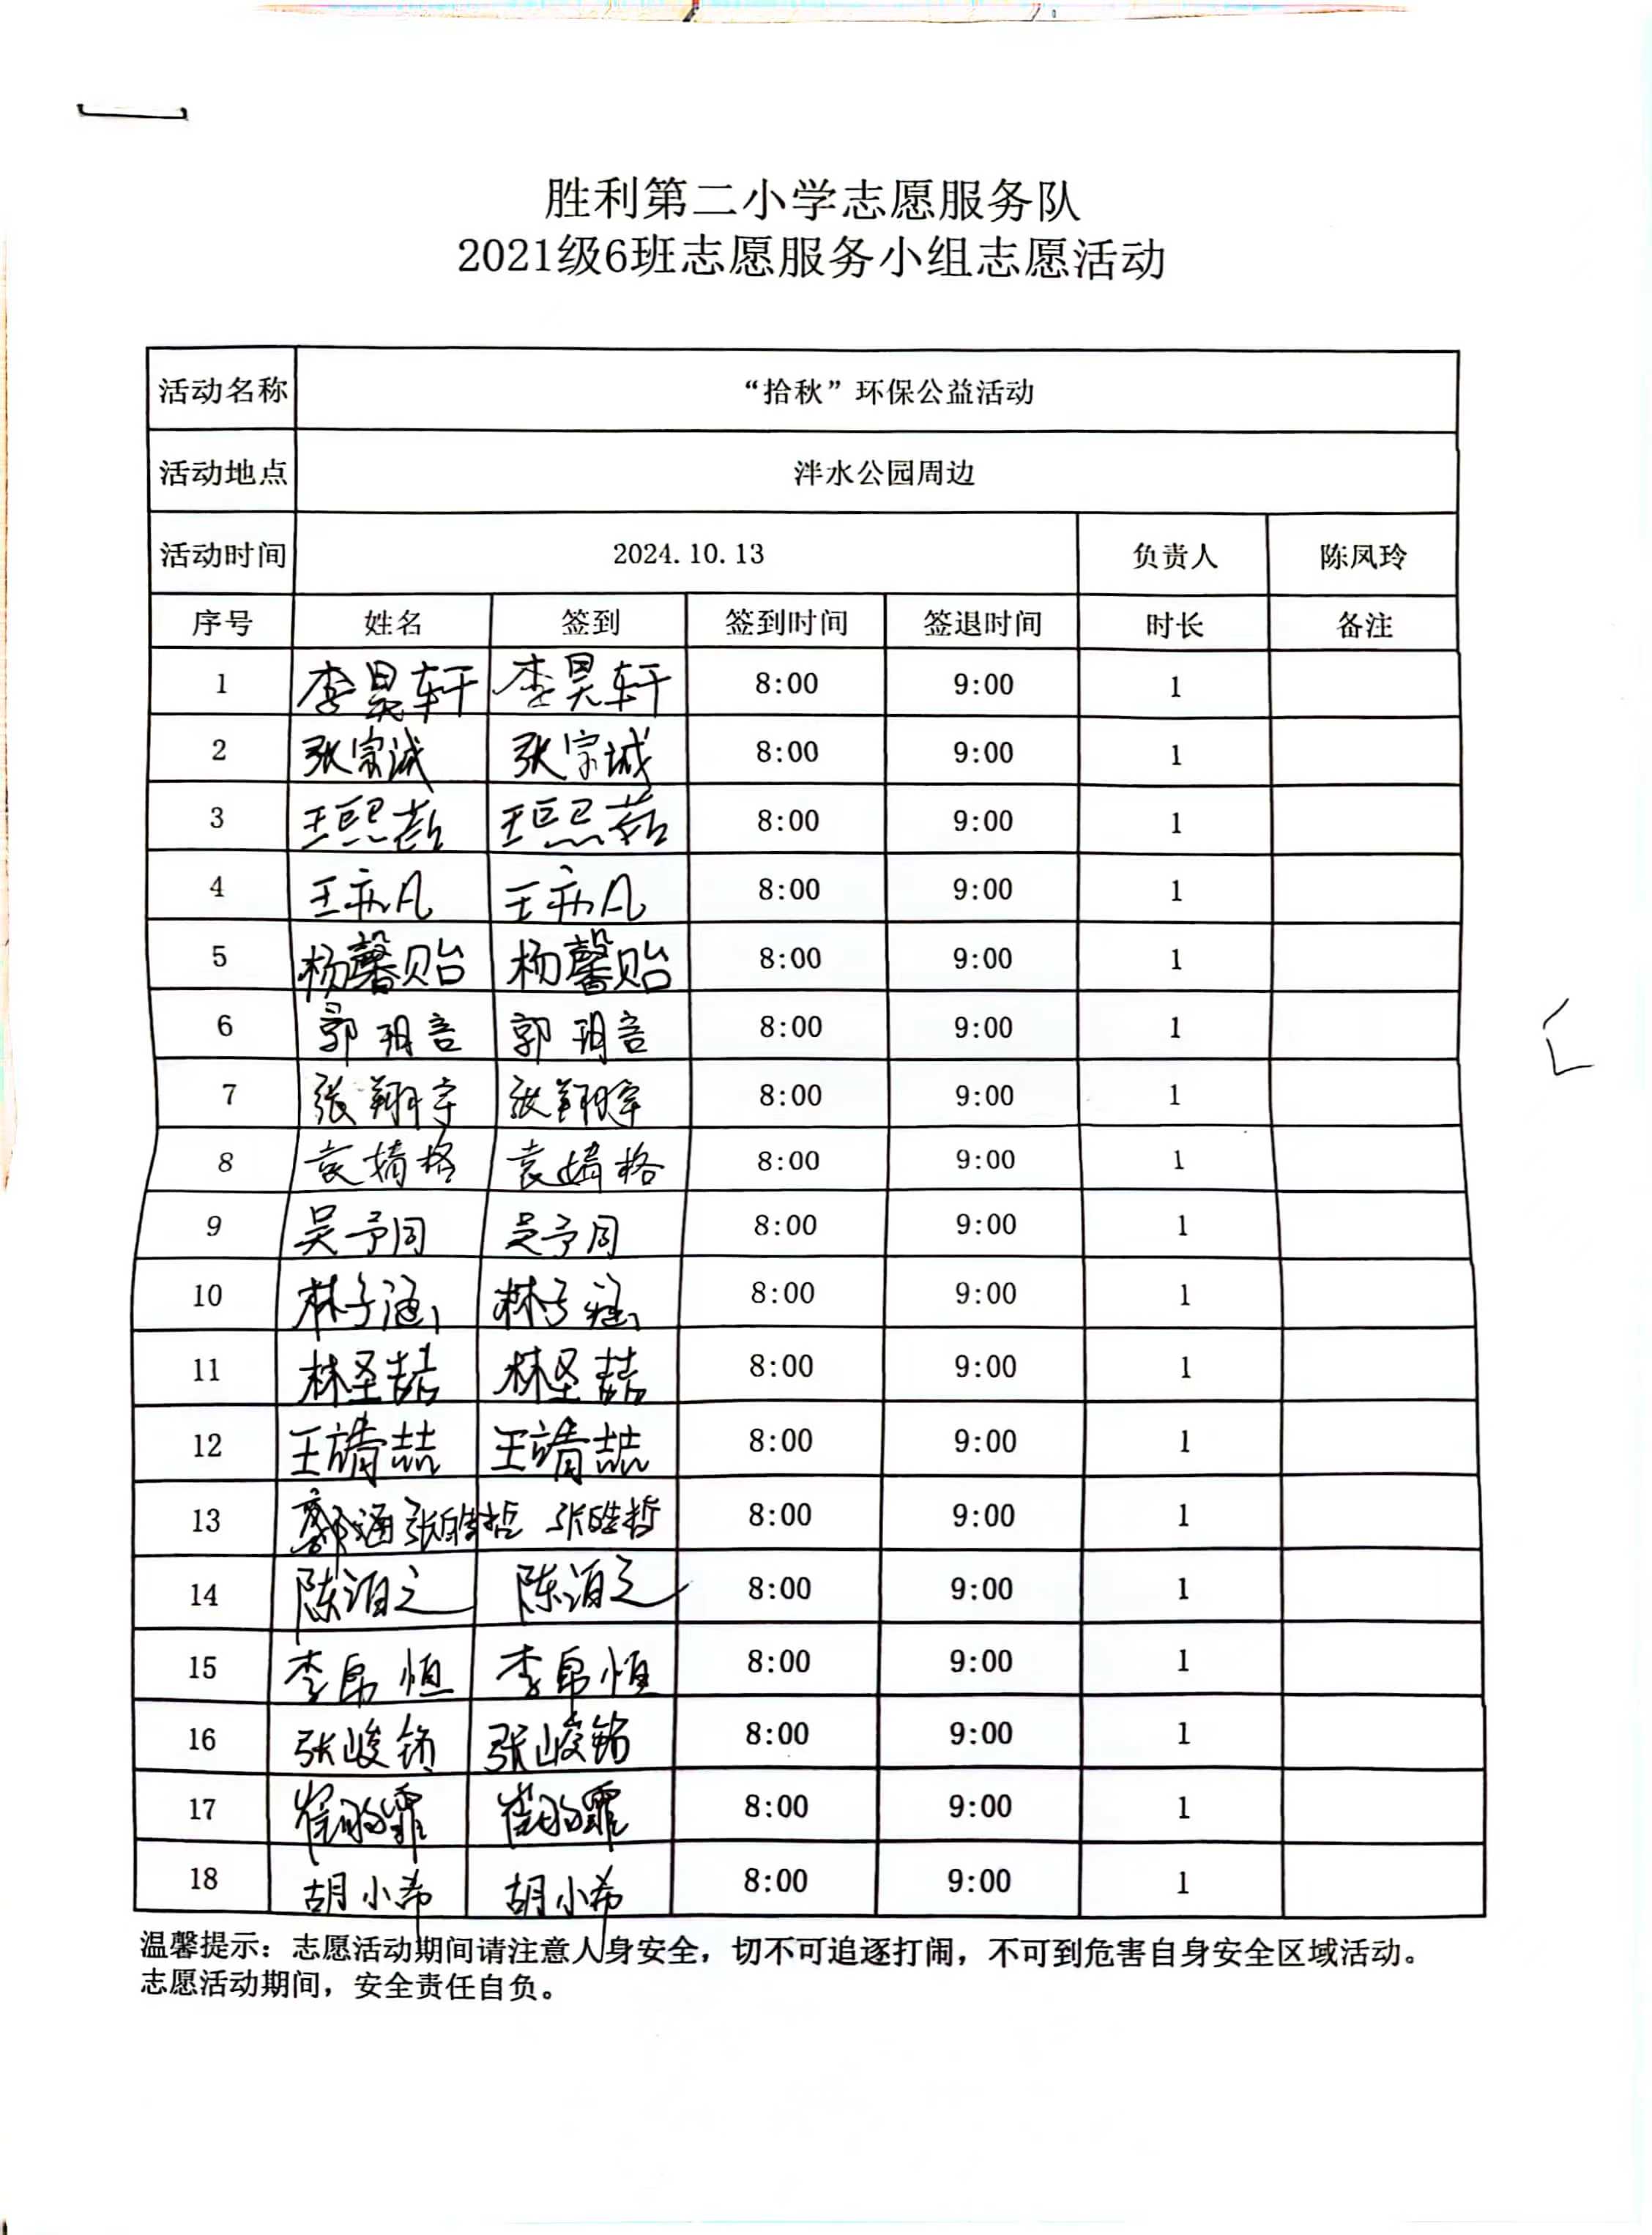 胜利第二小学志愿服务队
2021级6班志愿服务小组志愿活动
活动名称 “拾秋”环保公益活动
活动地点 泮水公园周边
活动时间 2024.10.13 负责人 陈凤玲
序号 姓名 签到 签到时间 签退时间 时长 备注
1 李昊轩 李昊轩 8:00 9:00 1
2 张宗诚 张宗城 8:00 9:00 1
3 王熙茹 王熙茹 8:00 9:00 1
4 王亦凡 王亦凡 8:00 9:00 1
5 杨馨贻 杨馨贻 8:00 9:00 1
6 郭玥言 郭玥言 8:00 9:00 1
7 张翔宇 张翔宇 8:00 9:00 1
8 袁婧格 袁婧格 8:00 9:00 1
9 吴予同 吴予同 8:00 9:00 1
10 林子涵 林子涵 8:00 9:00 1
11 林圣喆 林圣喆 8:00 9:00 1
12 王靖喆 王靖喆 8:00 9:00 1
13 张皓哲 张皓哲 8:00 9:00 1
14 陈泊之 陈泊之 8:00 9:00 1
15 李帛恒 李帛恒 8:00 9:00 1
16 张峻铭 张峻铭 8:00 9:00 1
17 8:00 9:00 1
18 胡小希 胡小希 8:00 9:00 1
温馨提示：志愿活动期间请注意人身安全，切不可追逐打闹，不可到危害自身安全区域活动。
志愿活动期间，安全责任自负。